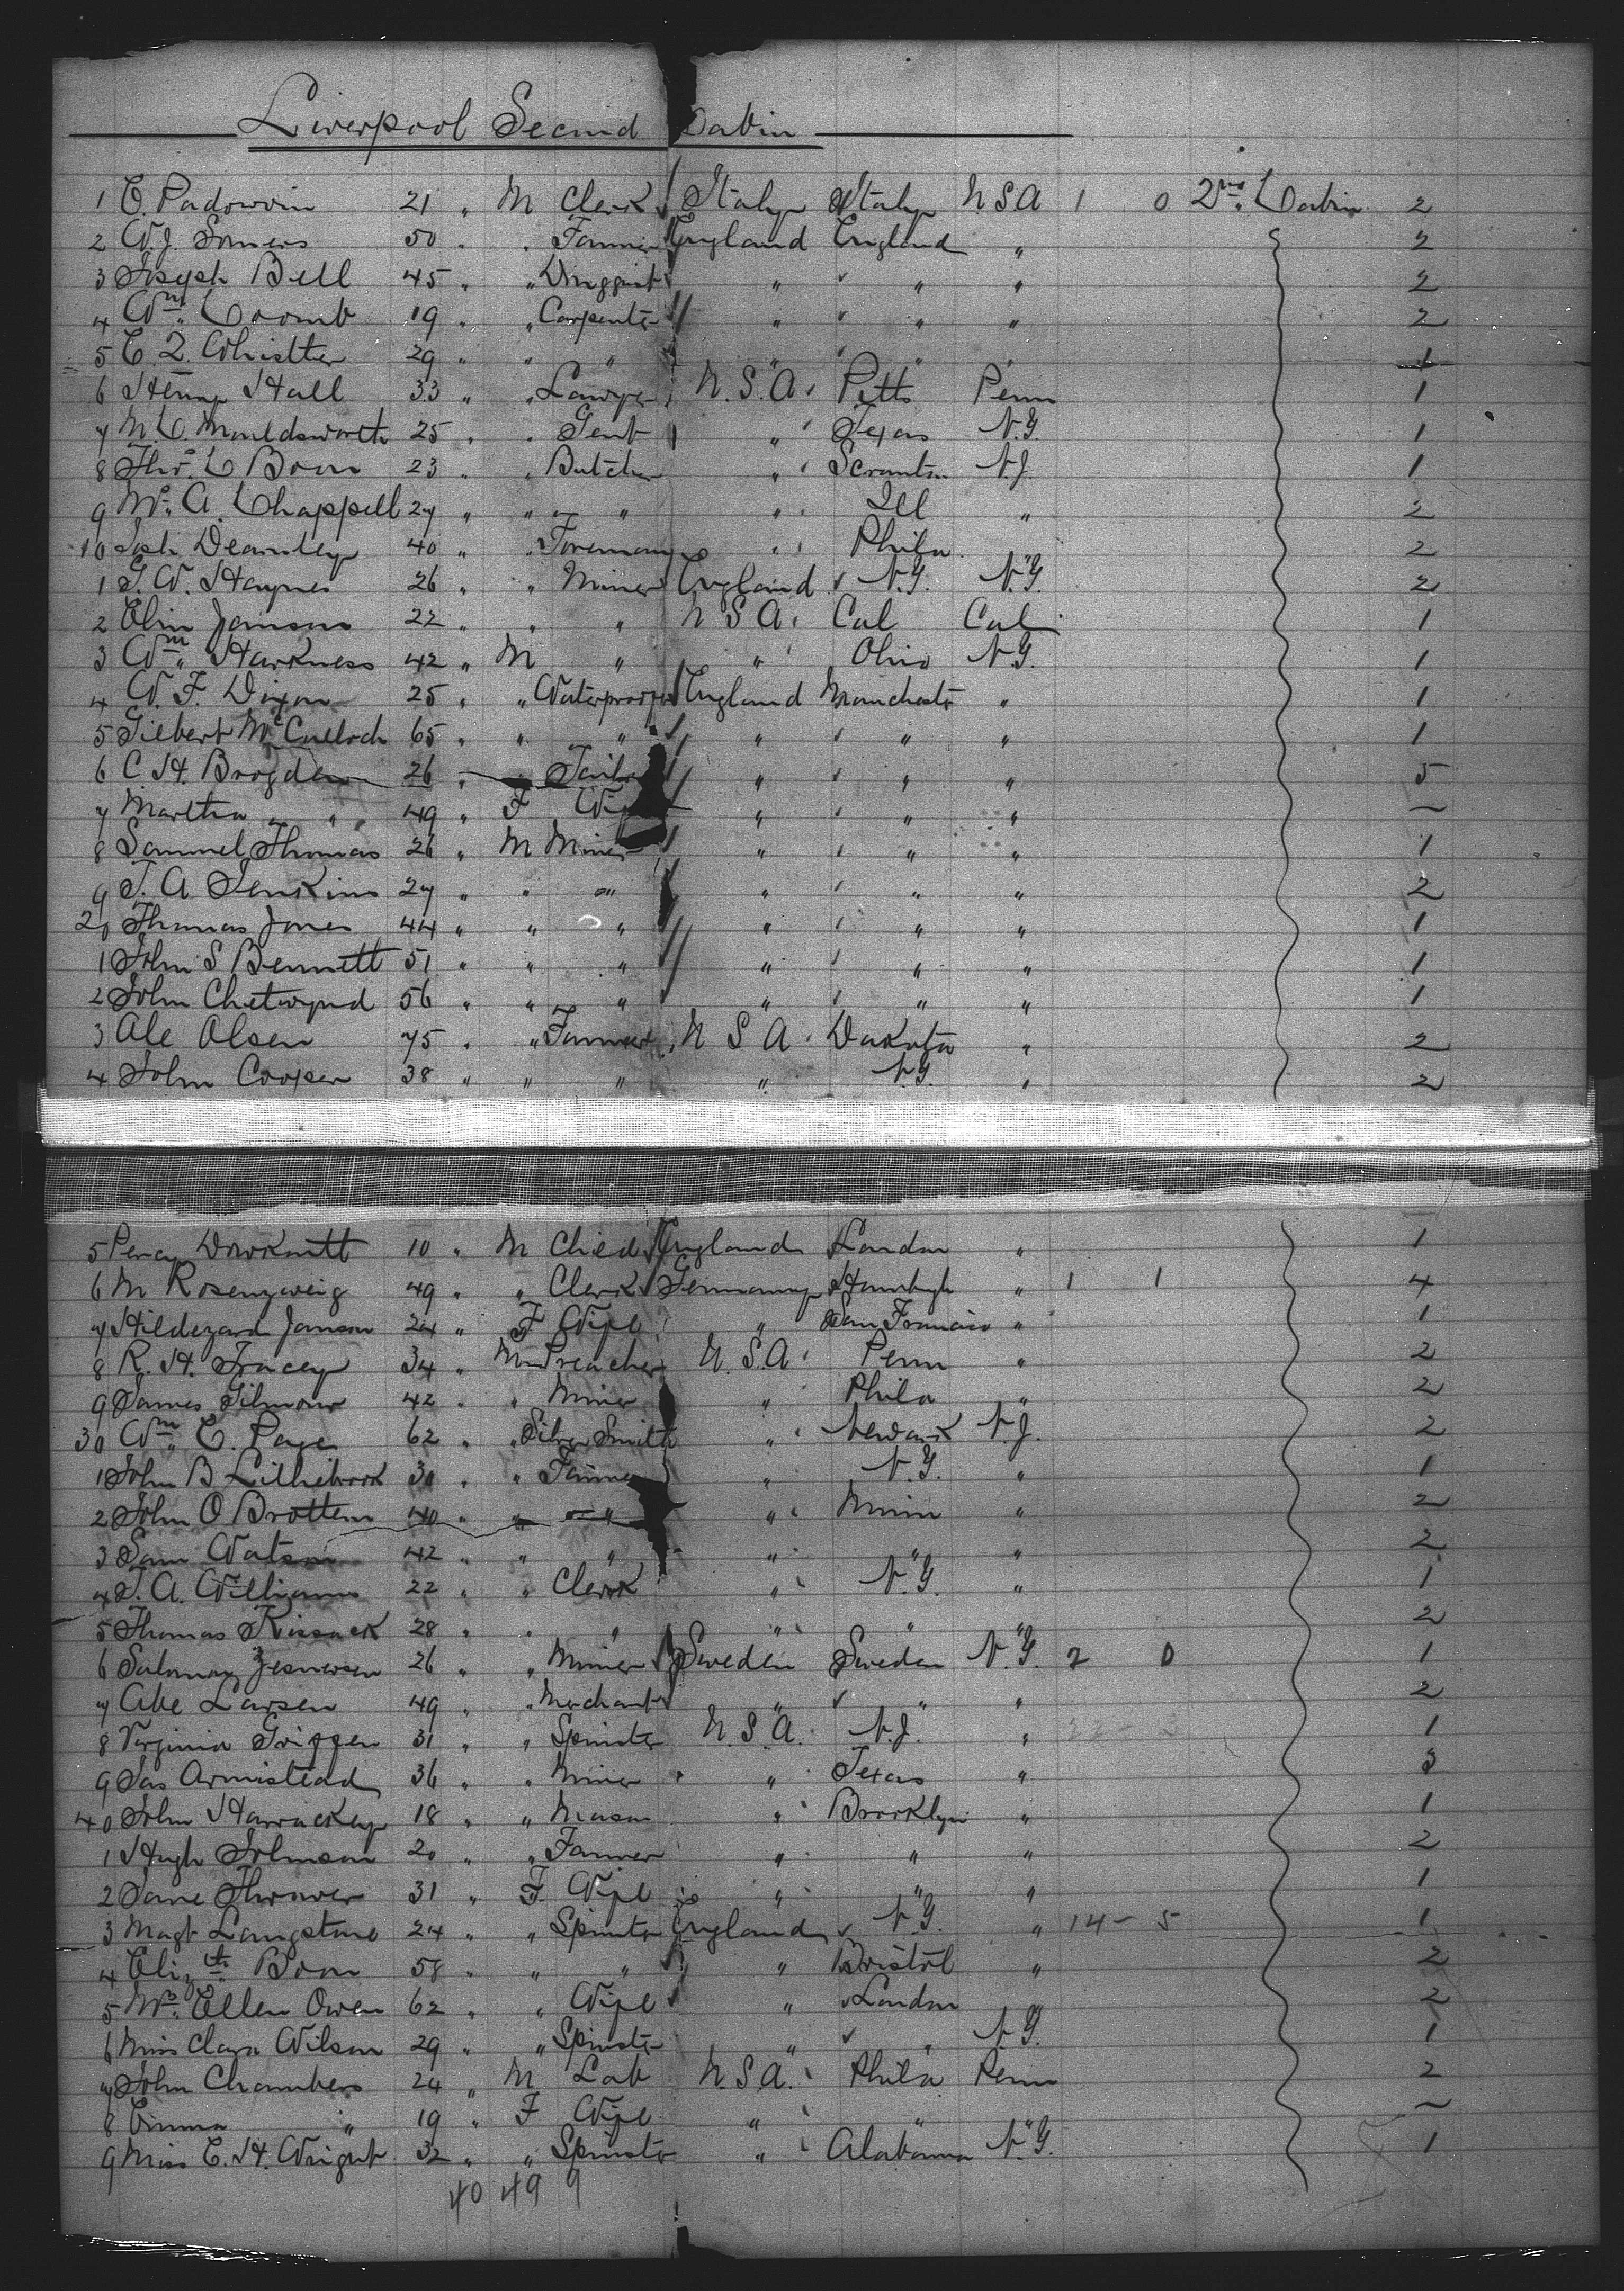 Liverpool Second Cabin
1 C. Padowvin 21 " M Clerk Italy Italy U.S.A 1 0 2nd Cabin 2
2 W.J. Somers 50 " " Farmer England England " 2
3 Joseph Bell 45 " " Druggist " " " 2
4 Wm Coomb 19 " " Carpenter " " " 2
5 C. Z. Whistler 29 " " " " " " 1
6 Henry Hall 33 " " Lawyer U.S.A. Pitts Penn 1
7 M.C. Mouldsworth 25 " " Gent " Texas N.Y. 1
8 Thos C Boon 23 " " Butcher " Scranton N.J. 1
9 A. Chappell 27 " " " " Ill " 2
10 Josh Dearnley 40 " " Foreman " Phila " 2
1 G.W. Haynes 26 " " Miner England N.Y. N.Y. 2
2 Olin Janson 22 " " " U S A. Cal Cal 1
3 Wm Harkness 42 " M " " Ohio N.Y. 1
4 W. F. Dixon 25 " " Waterproofer England Manchester " 1
5 Gilbert McCulloch 65 " " " " " " 1
6 C. H. Brogden 26 " " Tailor " " " 5
7 Martha " 49 " F Wife " " " ~
8 Samuel Thomas 26 " M Miner " " " 1
9 T. A Jenkins 27 " " " " " " 2
20 Thomas Jones 44 " " " " " " 1
1 John S Bennett 51 " " " " " " 1
2 John Chetwynd 56 " " " " " " 1
3 Ole Olsen 75 " " Farmer U S A. Dakota " 2
4 John Cooper 38 " " " " N.Y. " 2
5 Percy 10 " M Child England London " 1
6 M Rosenzweig 49 " " Clerk Germany Hamburgh " 1 1 4
7 Hildegard Janson 24 " F Wife " San Francisco " 1
8 R. H. Tracey 34 " M Preacher U.S.A. Penn " 2
9 James Gilmour 42 " " Miner " Phila " 2
30 Wm C. Page 62 " " Silver Smith " Newark N.J. 2
1 John B Lilliebrook 30 " " Farmer " N.Y. " 1
2 John O Brottem 40 " " " " Minn " 2
3 Sam Watson 42 " " " " " " 2
4 T. A. Williams 22 " " Clerk " N.Y. " 1
5 Thomas Kissack 28 " " " " " " 2
6 Salomon 26 " " Miner Sweden Sweden N.Y. 2 0 1
7 Abe Larsen 49 " " Merchant " " " 2
8 Virginia Griggen 31 " " Spinster U.S.A. N.J. " 1
9 Jas Armistead 36 " " Miner " Texas " 3
40 John Harrackey 18 " " Mason " Brooklyn " 1
1 Hugh Johnson 20 " " Farmer " " " 2
2 Jane Thrower 31 " F Wife " " " 1
3 Magt Langstone 24 " " Spinster England N.Y. " 14 - 5 1
4 Elizth Boon 58 " " " " Bristol " 2
5 Mrs Ellen Owen 62 " " Wife " London " 2
6 Miss Clara Wilson 29 " " Spinster " " N.Y. 1
7 John Chambers 24 " M Lab U.S.A. Phila Penn 2
8 Emma " 19 " F Wife " " " ~
9 Miss C. H. Wright 32 " " Spinster " Alabama N.Y. 1
40 49 9